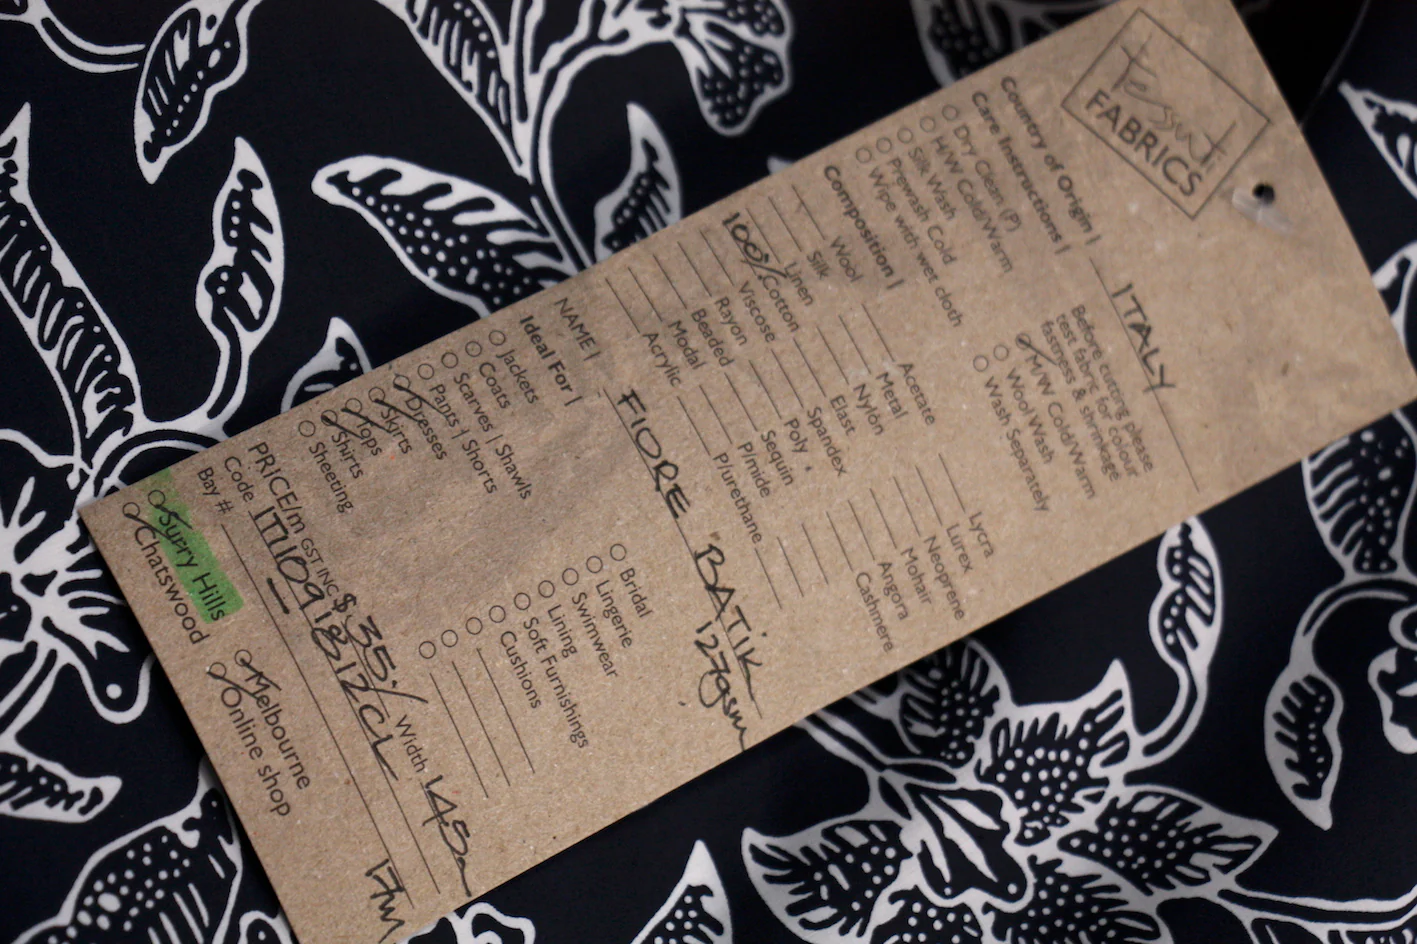 tessuti
FABRICS
Country of Origin | ITALY
Care Instructions |
Before cutting please
test fabric for colour
fastness & shrinkage
Dry Clean (P)
H/W Cold/Warm
Silk Wash
Prewash Cold
Wipe with wet cloth
M/W Cold/Warm
Wool Wash
Wash Separately
Composition |
Wool Acetate Lycra
Silk Metal Lurex
Linen Nylon Neoprene
100% Cotton Elast Mohair
Viscose Spandex Angora
Rayon Poly Cashmere
Beaded Sequin
Modal P/mide
Acrylic P/urethane
NAME | FIORE BATIK
127gsm
Ideal For |
Jackets Bridal
Coats Lingerie
Scarves | Shawls Swimwear
Pants | Shorts Lining
Dresses Soft Furnishings
Skirts Cushions
Tops
Shirts
Sheeting
PRICE/m GST INC $35./ Width 145
Code
Bay # 17m
Surry Hills Melbourne
Chatswood Online shop